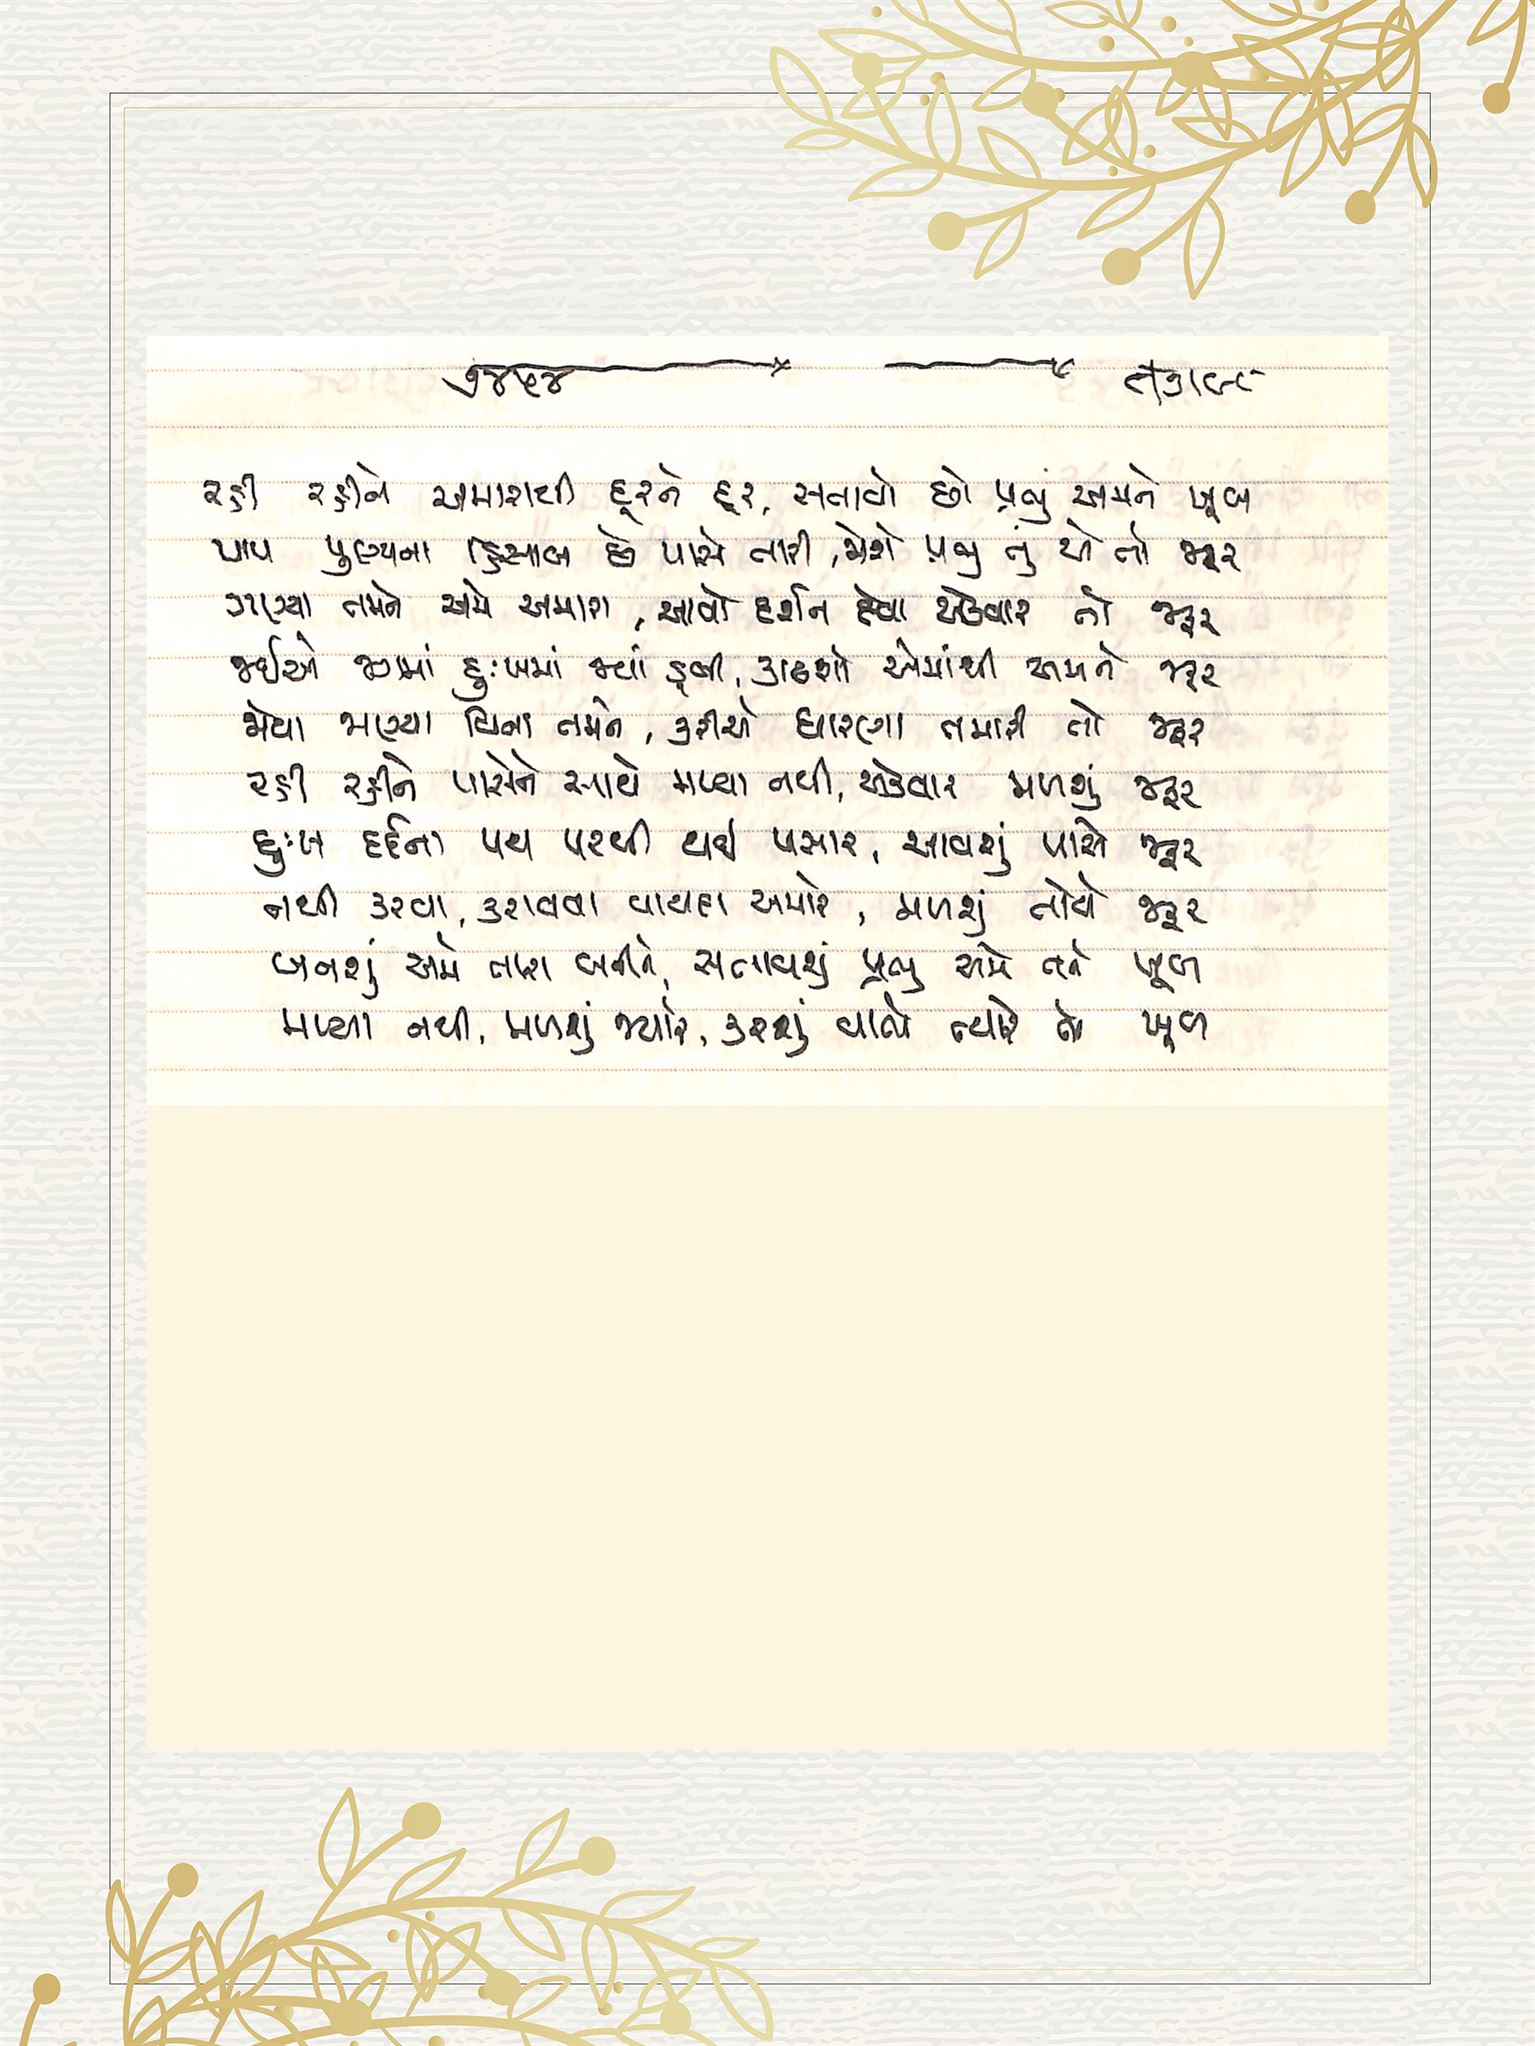 ૭૪૫૪
રહી રહીને અમારાથી દૂરને દૂર, સતાવો છો પ્રભું અમને ખૂબ
પાપ પુણ્યના હિસાબ છે પાસે તારી, જોશે પ્રભુ તું એ તો જરૂર
ગણ્યા તમને અમે અમારા, આવો દર્શન દેવા એકવાર તો જરૂર
જઈએ જગમાં દુઃખમાં જ્યાં ડૂબી, કાઢશો એમાંથી અમને જરૂર
જોયા જાણ્યા વિના તમને, કરીએ ધારણા તમારી તો જરૂર
રહી રહીને પાસેને સાથે મળ્યા નથી, એકવાર મળશું જરૂર
દુઃખ દર્દના પથ પરથી થઈ પસાર, આવશું પાસે જરૂર
નથી કરવા, કરાવવા વાયદા અમારે, મળશું તોયે જરૂર
બનશું અમે તારા બનીને, સતાવશું પ્રભુ અમે તને ખૂબ
મળ્યા નથી, મળશું જ્યારે, કરશું વાતો ત્યારે તો ખૂબ